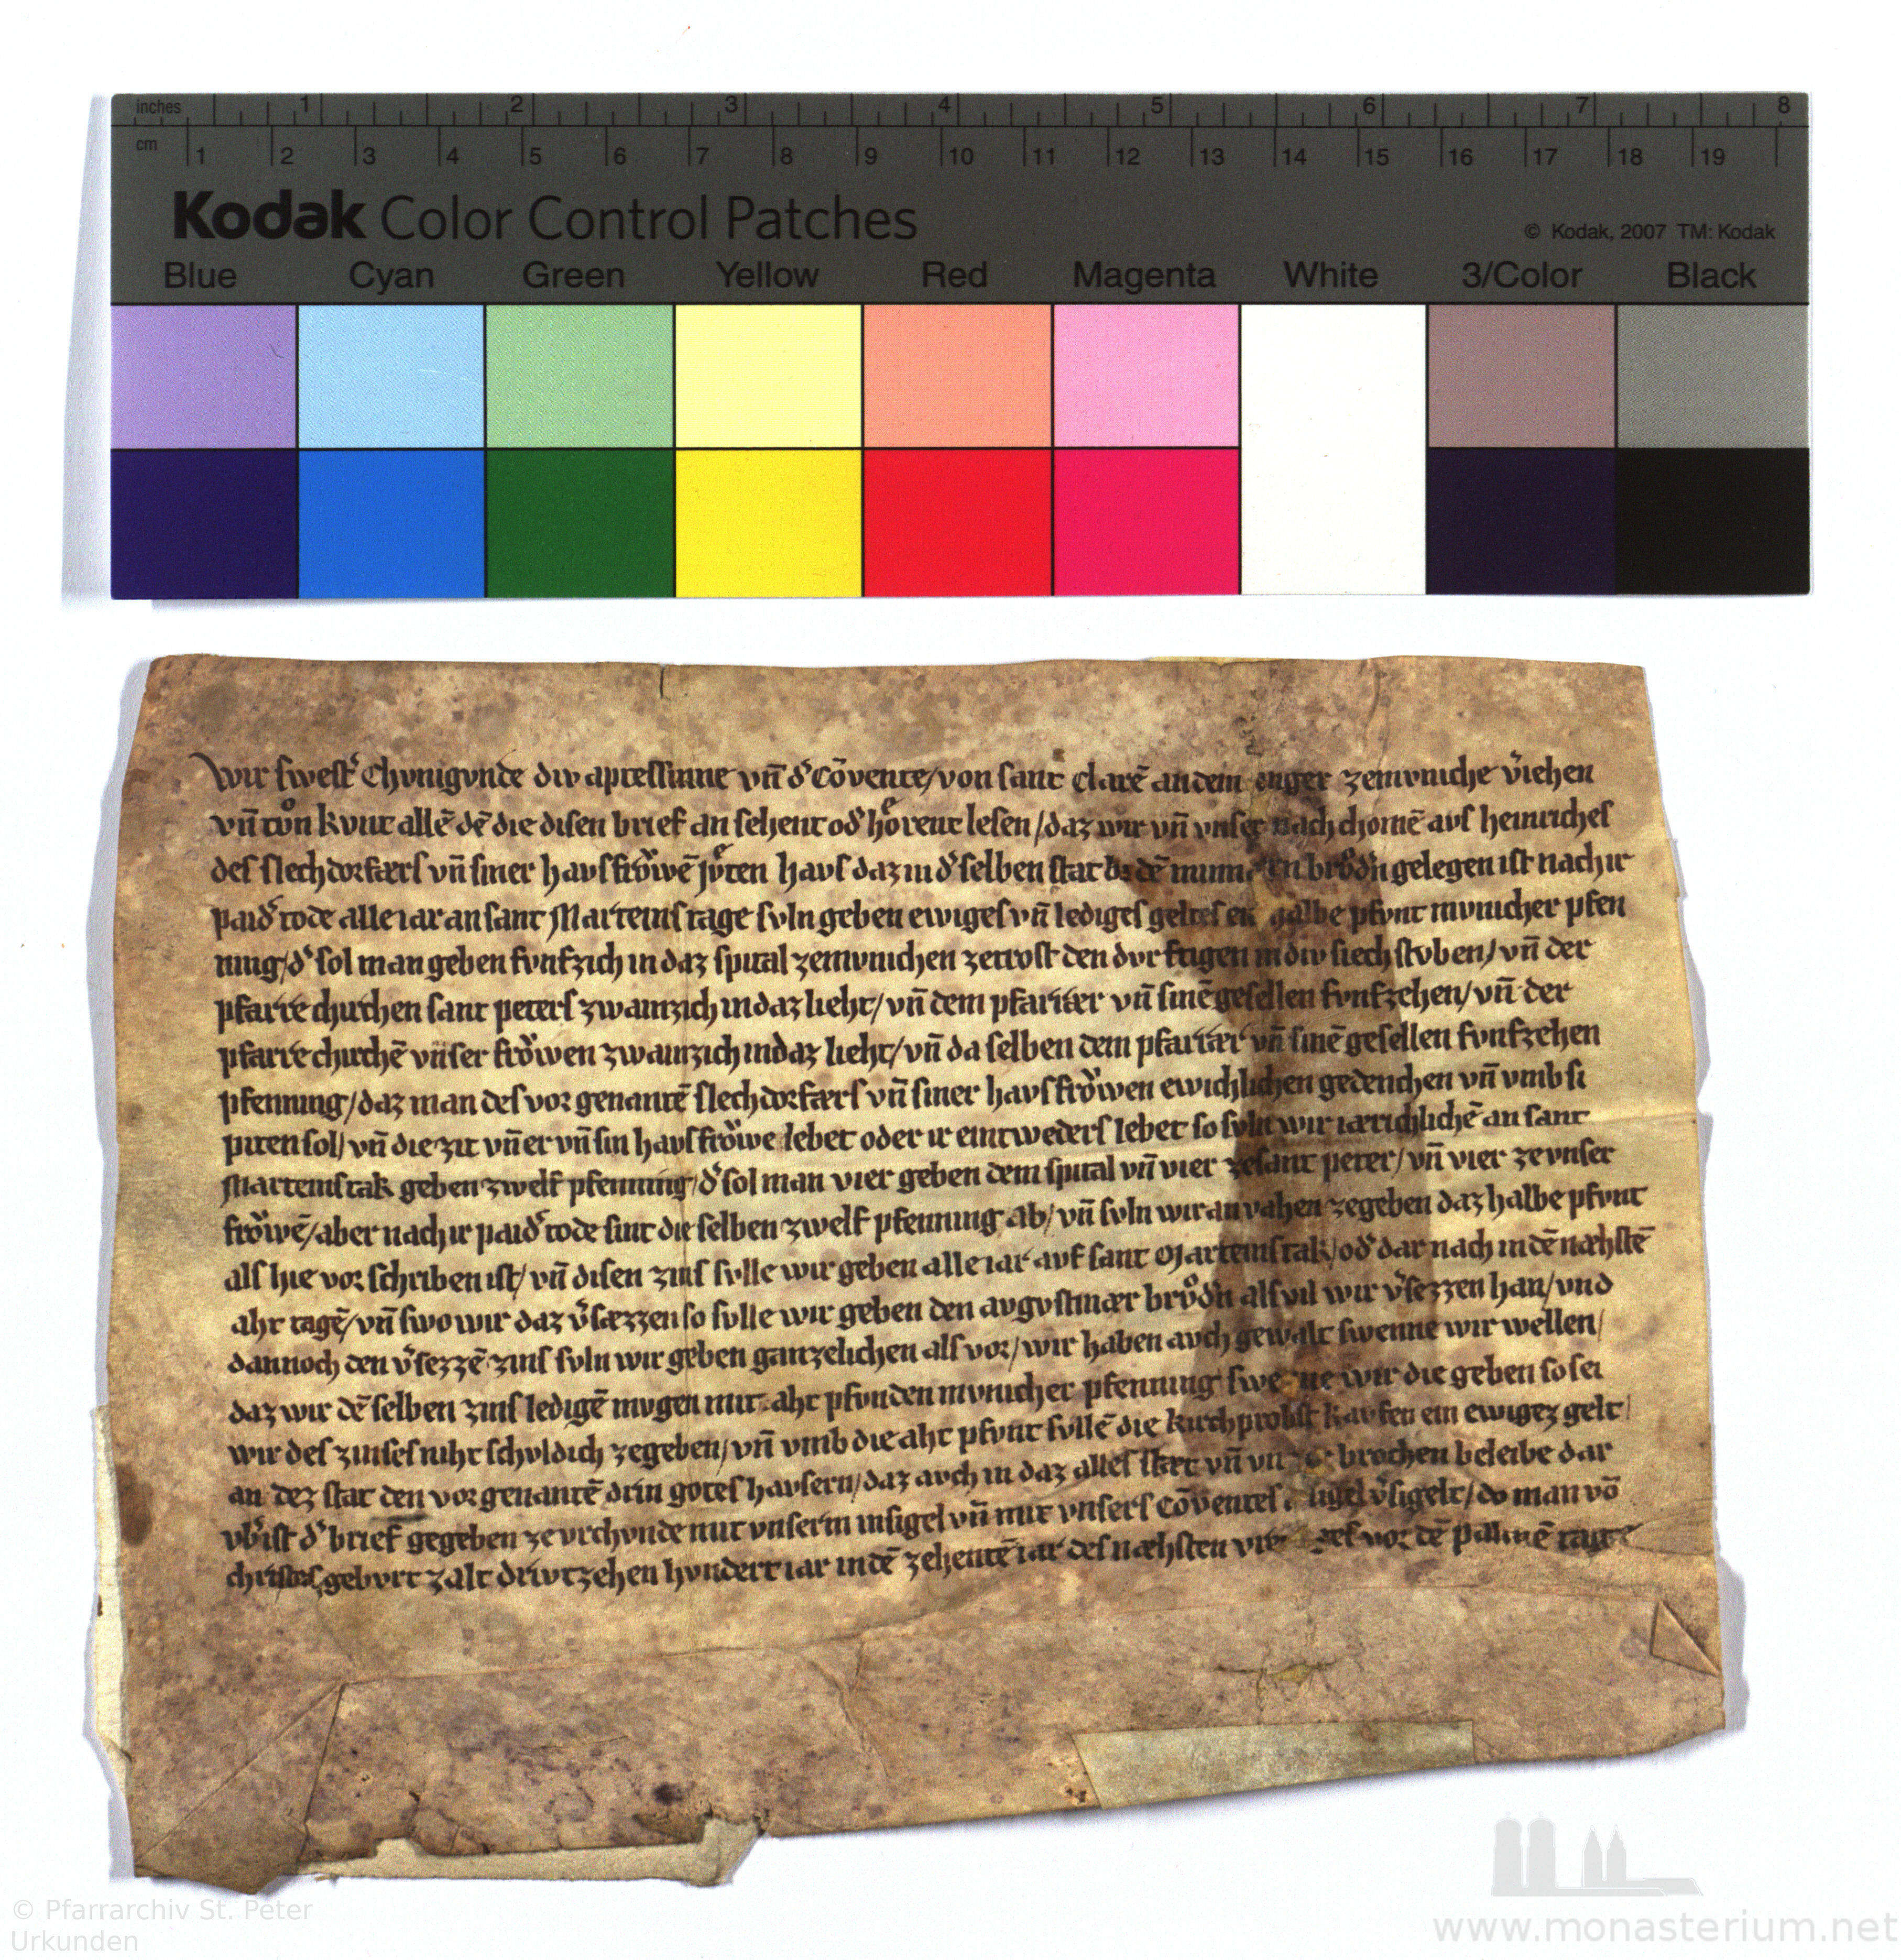 inches 1 2 3 4 5 6 7 8
cm 1 2 3 4 5 6 7 8 9 10 11 12 13 14 15 16 17 18 19
Kodak Color Control Patches
© Kodak, 2007 TM: Kodak
Blue Cyan Green Yellow Red Magenta White 3/Color Black
Wir swest̛ Chvnigvnde div aptessinne vn̄ d̛ Cōvente/ von sant Clarē an dem anger ze mvniche v̛iehen
vn̄ tvͦn kvnt allē dē die disen brief an sehent od̛ hoͤrent lesen/ daz wir vn̄ vnser nach chomē avs heinriches
des slechdorfærs vn̄ siner havsfroͮwē jvͤten havs daz in d̛ selben stat dē brvͦd̛n gelegen ist nach ir
paid̛ tode alle iar an sant Marteins tage svln geben ewiges vn̄ lediges geltes halbe pfvnt mvnicher pfen
ning/ d̛ sol man geben fvnfzich in daz spital ze mvnichen ze trost den dvrftigen in div siech stvben/ vn̄ der
pfarre chirchen sant peters zwainzich in daz lieht/ vn̄ dem pfarrær vn̄ sinē gesellen fvnfzehen/ vn̄ der
pfarre chirchē vnser froͮwen zwainzich in daz lieht/ vn̄ da selben dem pfarrær vn̄ sinē gesellen fvnfzehen
pfenning/ daz man des vor genantē slechdorfærs vn̄ siner havsfroͮwen ewichlichen gedenchen vn̄ vmb si
piten sol/ vn̄ die zit vn̄ er vn̄ sin havsfroͮwe lebet oder ir eintweders lebet so svln wir iærichlichē an sant
Marteins tak geben zwelf pfenning/ d̛ sol man vier geben dem spital vn̄ vier ze sant peter/ vn̄ vier ze vnser
froͮwē/ aber nach ir paid̛ tode sint die selben zwelf pfenning ab/ vn̄ svln wir an vahen ze geben daz halbe pfvnt
als hie vor schriben ist/ vn̄ disen zins svlle wir geben alle iar avf sant Marteins tak/ od̛ dar nach in dē næhstē
aht tagē/ vn̄ swo wir daz v̛sæzzen so svlle wir geben den avgvstinær brvͦd̛n als vil wir v̛sezzen han/ vnd
dannoch den v̛sezzē zins svln wir geben ganzelichen als vor/ wir haben avch gewalt swenne wir wellen/
daz wir dē selben zins ledigē mvgen mit aht pfvnden mvnicher pfenning swenne wir die geben so sei
wir des zinses niht schvldich ze geben/ vn̄ vmb die aht pfvnt svllē die kirchprobst kavfen ein ewigez gelt/
an dez stat den vor genantē drin gotes havsern/ daz avch in daz alles stæt vn̄ brochen beleibe dar
vb̛ ist d̛ brief gegeben ze vrchvnde mit vnserm insigel vn̄ mit vnsers Cōventes v̛sigelt/ do man vō
christes gebvrt zalt drivtzehen hvndert iar in dē zehentē iar des næhsten vor dē palmē tage
© Pfarrarchiv St. Peter
Urkunden
www.monasterium.net